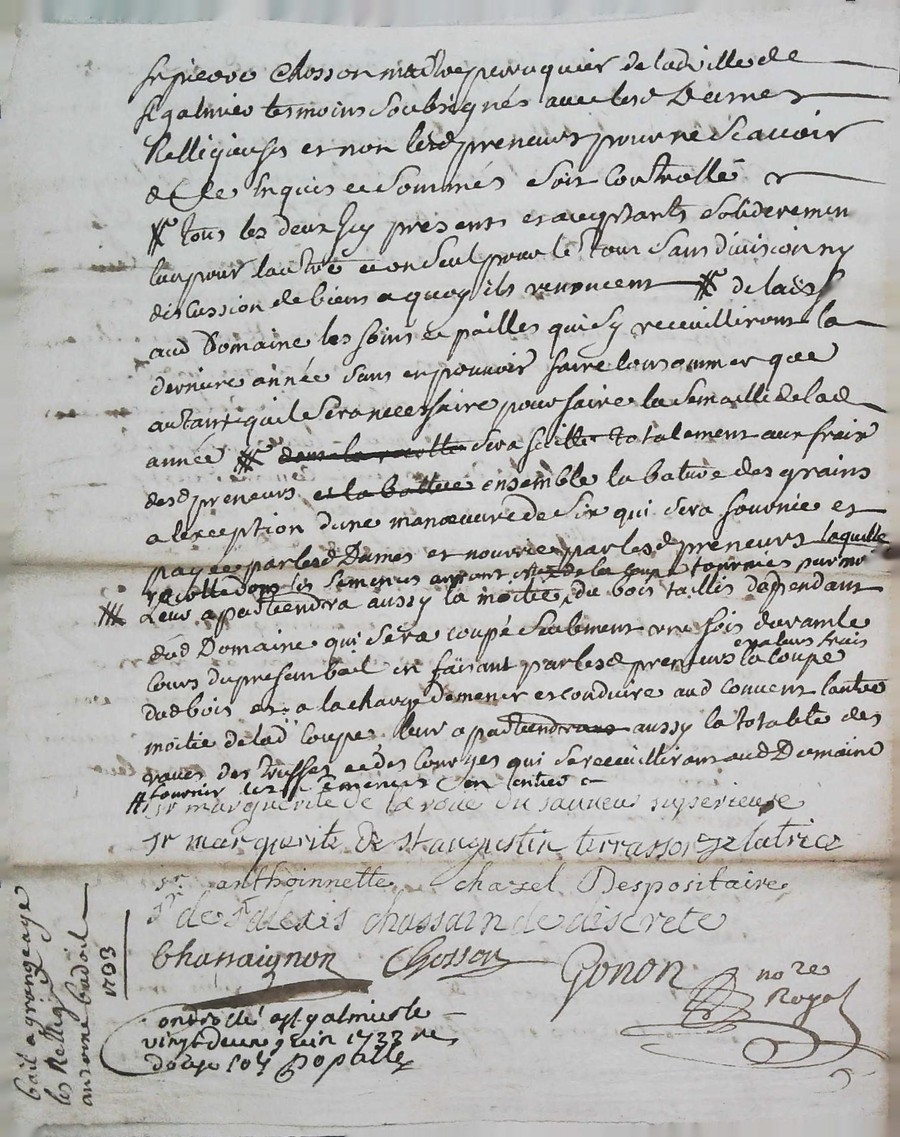 Sr pierre Chosson maitre peruquier de lad ville de
st galmier tesmoins soubsignés avec lesd Dames
Relligieuses et non lesd preneurs pour ne scavoir
de ce enquis et sommés soit controllé
tous les deux icy presents et acceptants soliderement
lun pour lautre et un seul pour le tout sans division ny
discussion de biens a quoy ils renoncent de laisser
aud Domaine les foins et pailles qui sy receuilliront la
derniere année sans en pouvoir faire consommer que
autant quil sera necessaire pour faire la semaille de lad
année dont la recolte sera faitte totalement aux frais
desd preneurs et la batture ensemble la bature des grains
a lexception dune manœuvre de six qui sera fournie et
payée par lesd Dames et nourrie par lesd preneurs laquelle
recolte les semences
Leur apartiendra aussy la moitié du bois taillis dependant
dud Domaine qui sera coupé seulement une fois durant le
cours du present bail en faisant par lesd preneurs la coupe
et a leurs frais
dud bois et a la charge de mener et conduire aud couvent lautre
moitié de lad coupe leur apartiendra aussy la totalité des
raves des truffes et des courges qui se receuilliront aud Domaine
fournir les semences en entier
sr marguerite de la roue du sauveur superieure
sr marguerite de st augustin terrasson zelatrice
sr anthoinnette chazel Despositaire
sr de st alexis chassain de discrete
Chassaignon Chosson Gonon nore Royal
Controllé a st galmier le
vingt deux juin 1733 re
douze sols Popalle
bail a grangeage
les Relligieuses
antoine badoil
1733